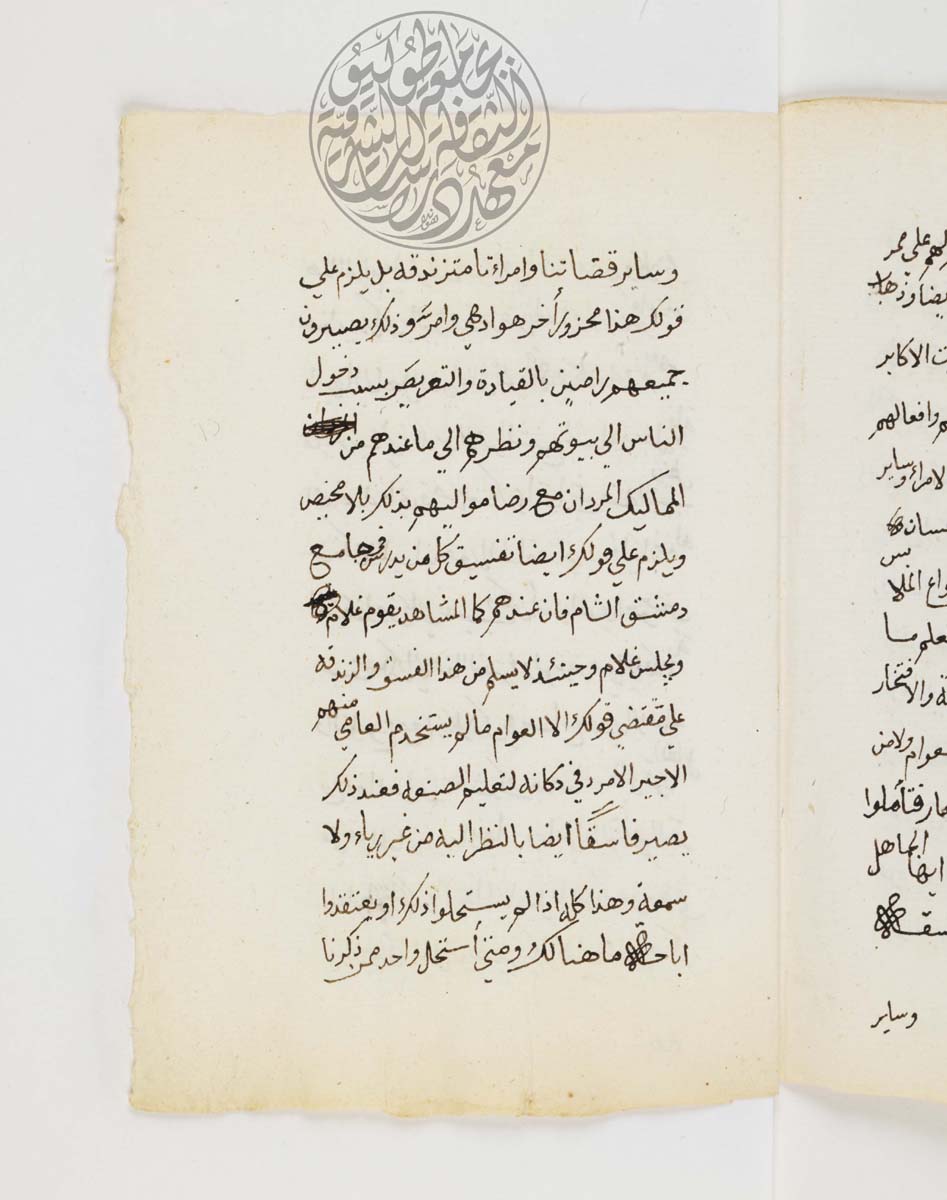 وساير قضاتنا وامراءنا متزندقه بل يلزم علي
قولك هذا محزور أخر هو ادهي وامر وذلك يصيرون
جميعهم راضين بالقيادة والتعريص بسبب دخول
الناس الي بيوتهم ونظرهم الي ما عندهم من
المماليك المردان مع رضا مواليهم بذلك بلا محيص
ويلزم علي قولك ايضا تفسيق كل من يدرس في جامع
دمشق الشام فان عندهم كما المشاهد يقوم غلام
ويجلس غلام وحينئذ لا يسلم من هذا الفسق والزندقه
علي مقتضي قولك الا العوام ما لم يستخدم العامي منهم
الاجير الامرد في دكانه لتعليم الصنعه فعند ذلك
يصير فاسقاً ايضا بالنظر اليه من غير رياء ولا
سمعة وهذا كله اذا لم يستحلوا ذلك او يعتقدوا
اباحة ما هنالك ومتي أستحل واحد ممن ذكرنا
علي
الاكابر
وافعالهم
الامراء وساير
والافتخار
فتأملوا
الجاهل
ايها
وساير